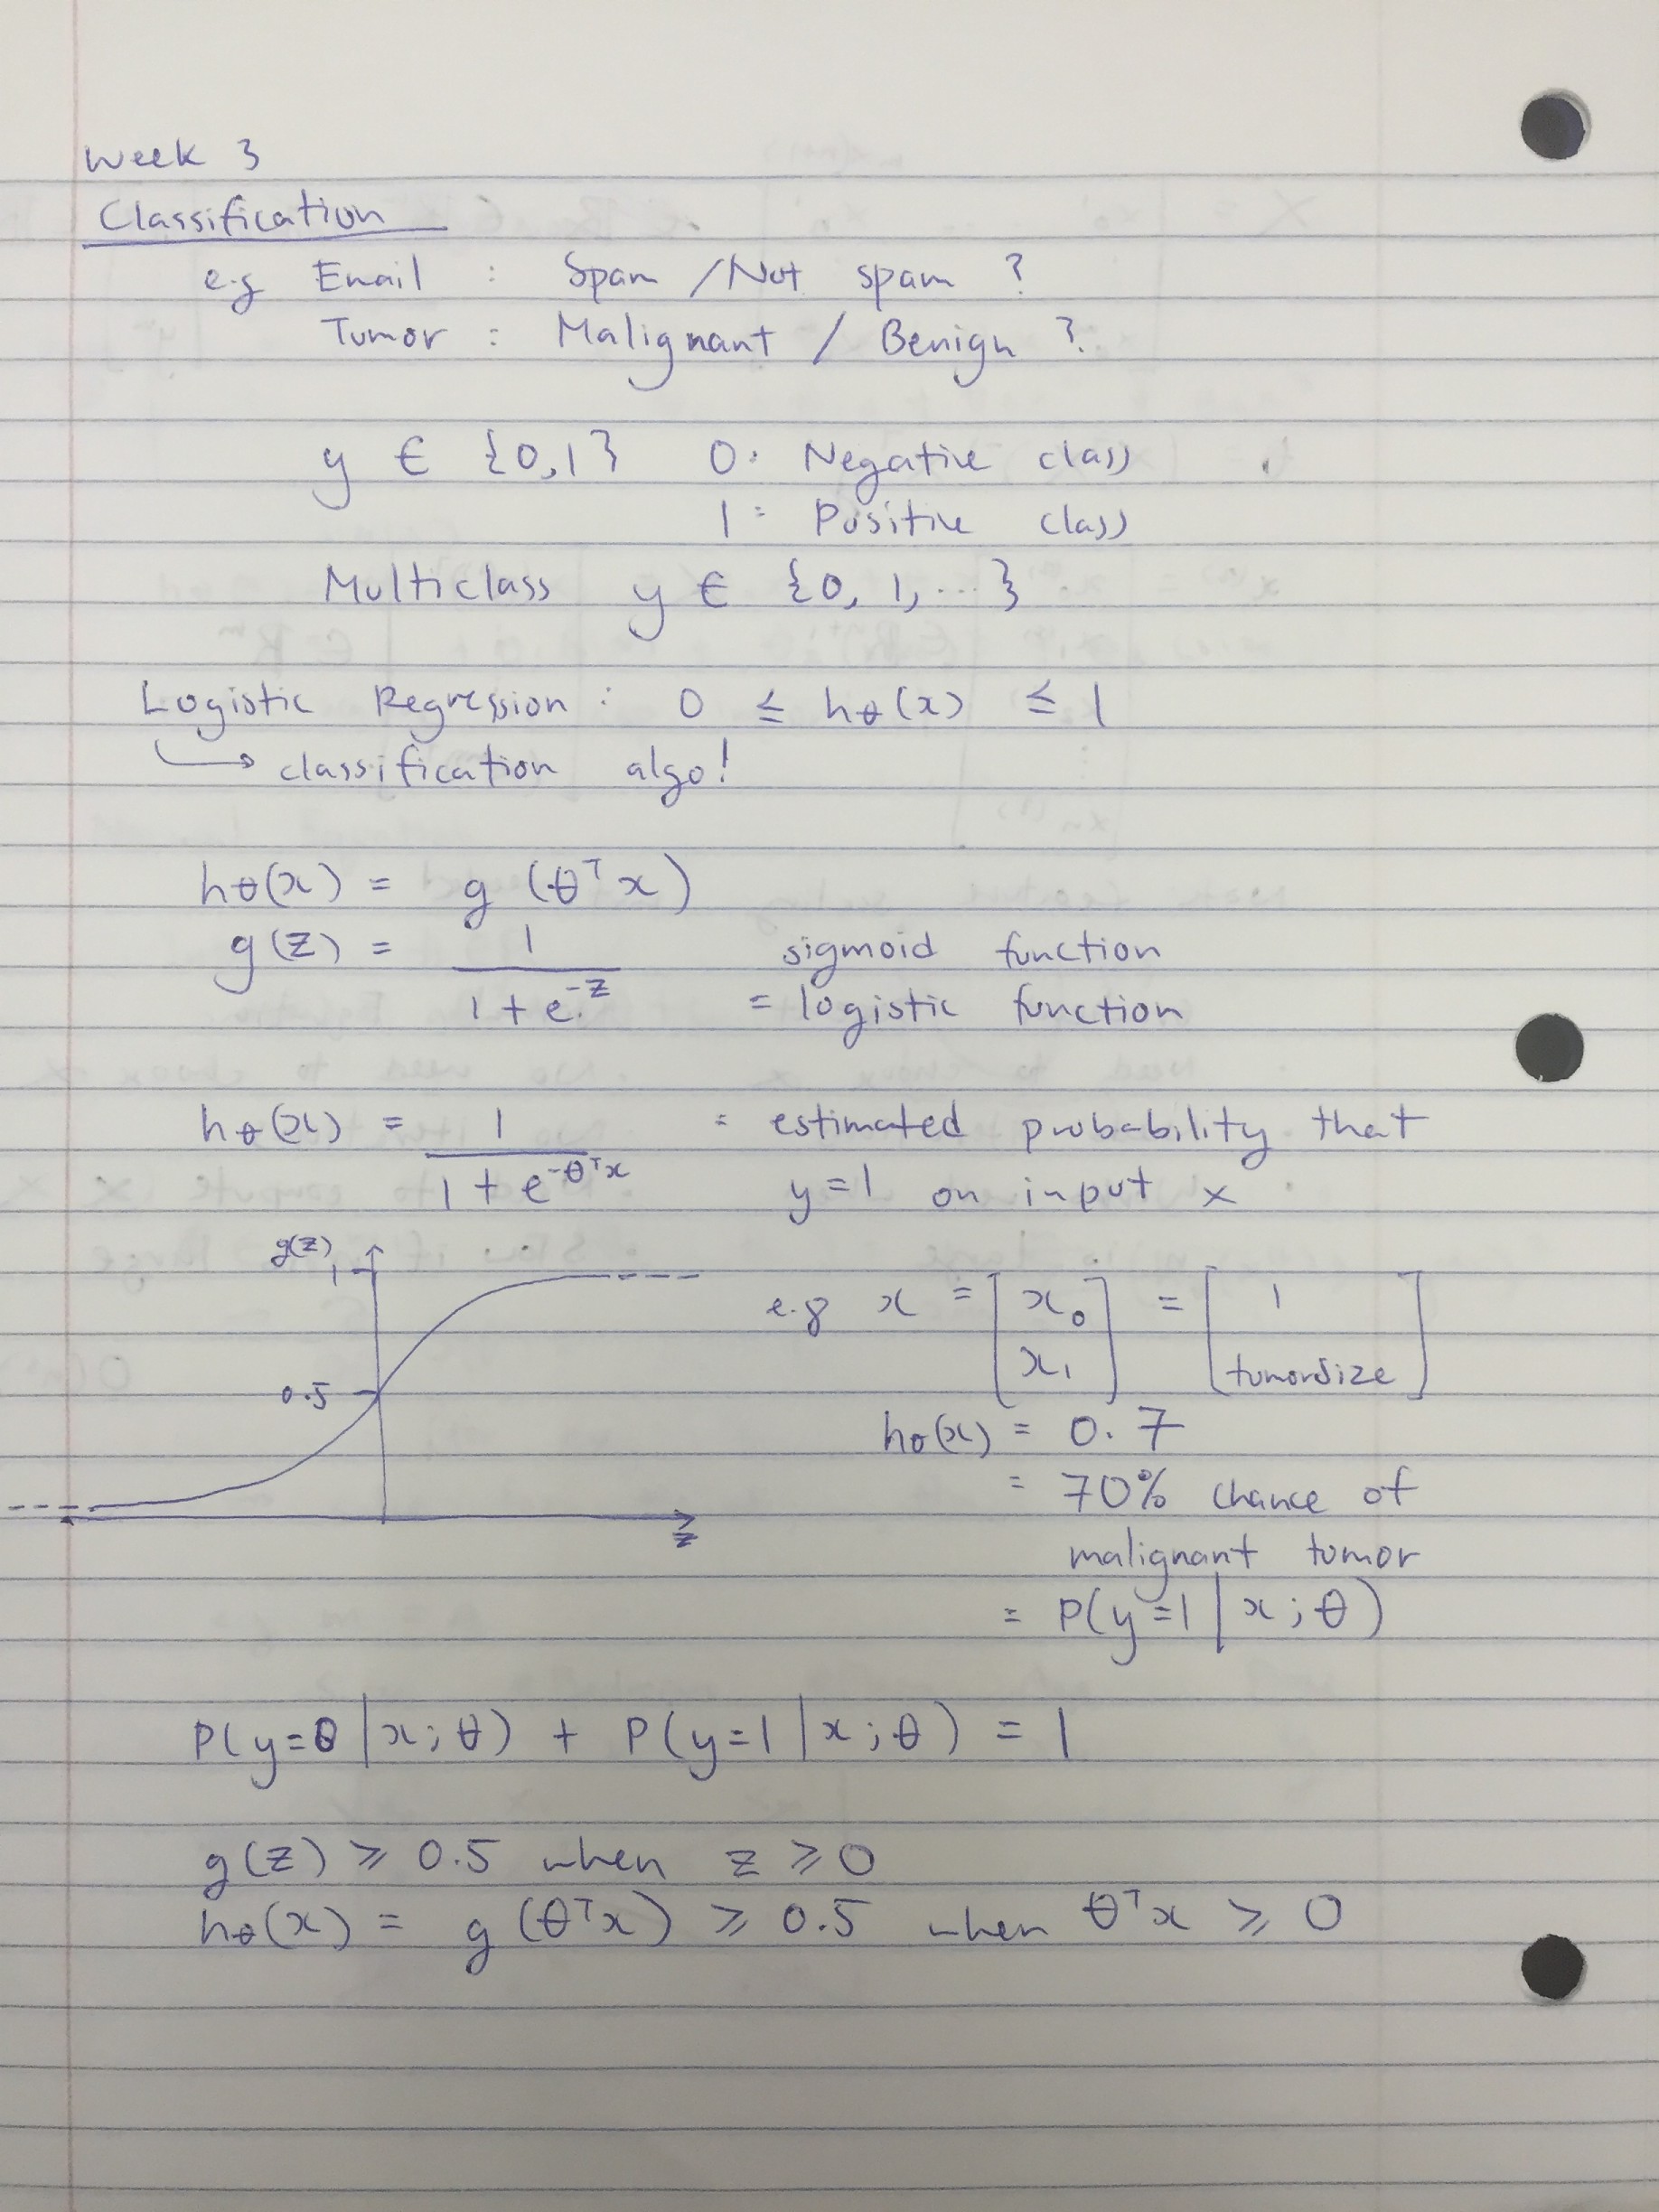 Week 3
Classification
e.g Email : Spam / Not spam ?
Tumor : Malignant / Benign ?
y ∈ {0,1} 0: Negative class
1: Positive class
Multiclass y ∈ {0, 1, ...}
Logistic Regression : 0 ≤ hθ(x) ≤ 1
↳ classification algo!
hθ(x) = g (θᵀx)
g(z) = 1 / (1 + e^-z) sigmoid function
= logistic function
hθ(x) = 1 / (1 + e^-θᵀx) = estimated probability that
y=1 on input x
g(z)
1
0.5
z
e.g x = [x₀ x₁] = [1 tumorsize]
hθ(x) = 0.7
= 70% chance of
malignant tumor
= P(y=1 | x ; θ)
P(y=0 | x ; θ) + P(y=1 | x ; θ) = 1
g(z) ⩾ 0.5 when z ⩾ 0
hθ(x) = g (θᵀx) ⩾ 0.5 when θᵀx ⩾ 0